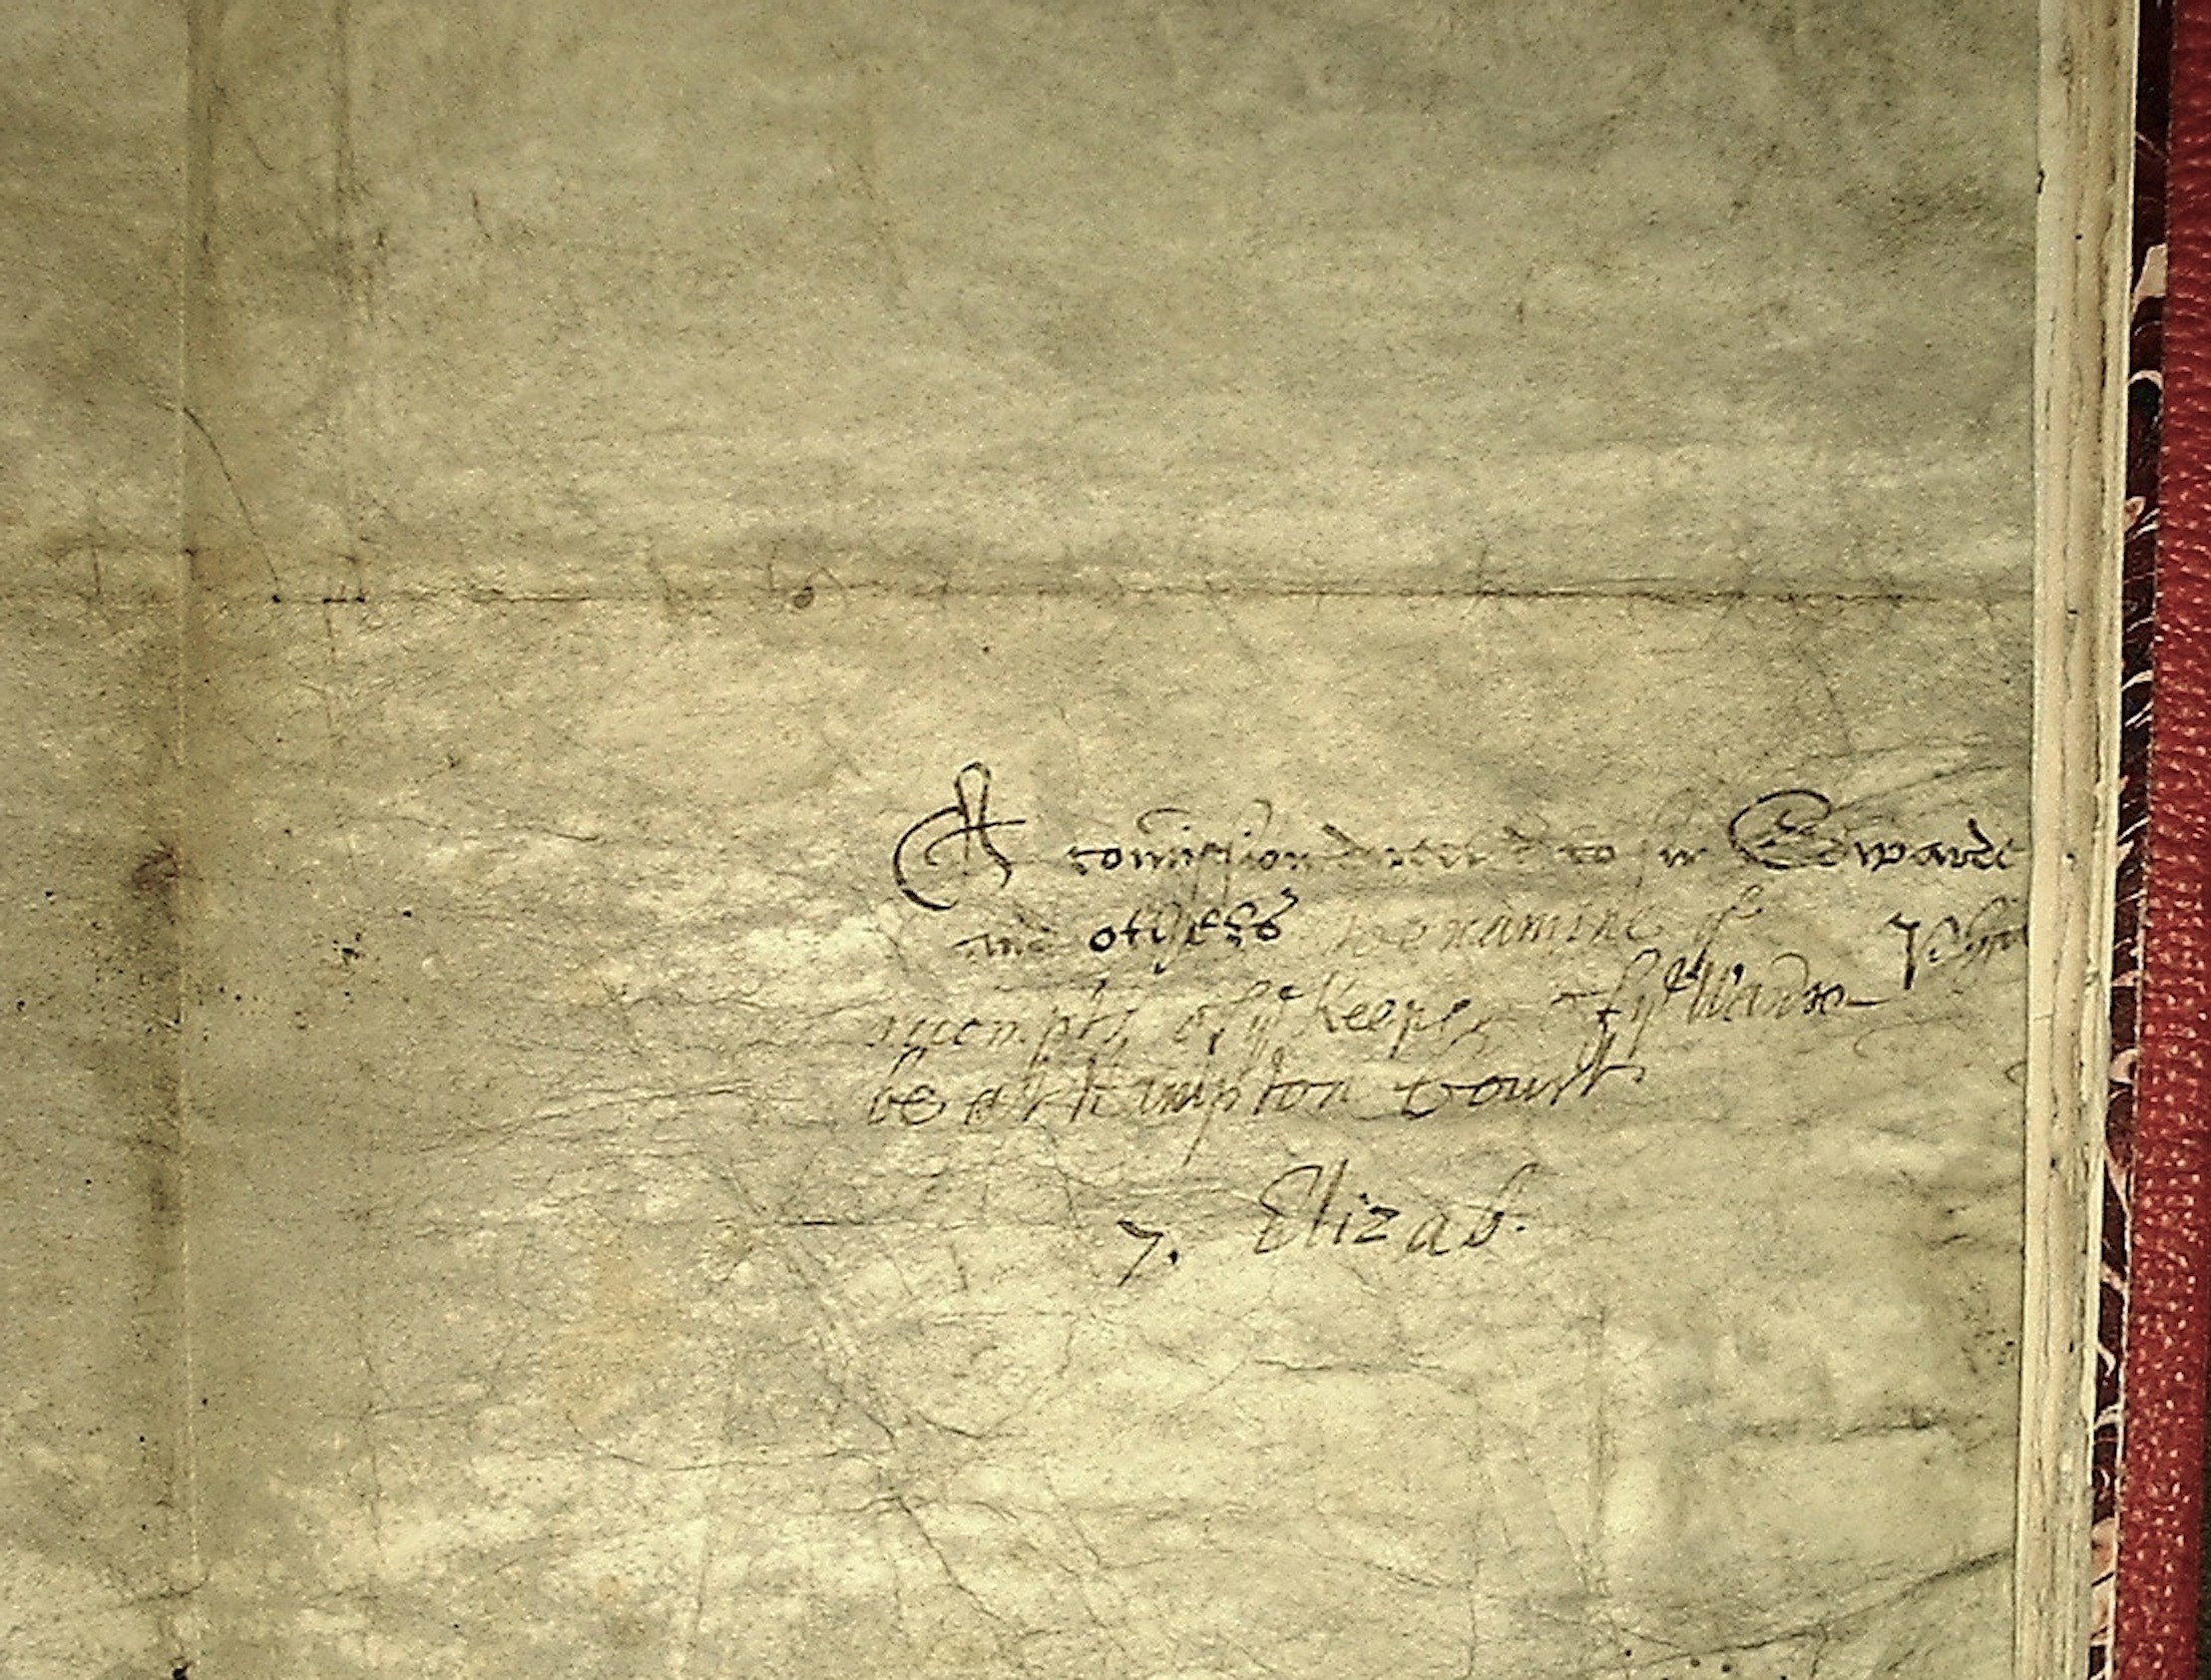 A com̄ission directed to sir Edwarde
and others to examine ye
accompts of ye Keeper of ye Wardro
be at Hampton Court
7. Elizab.